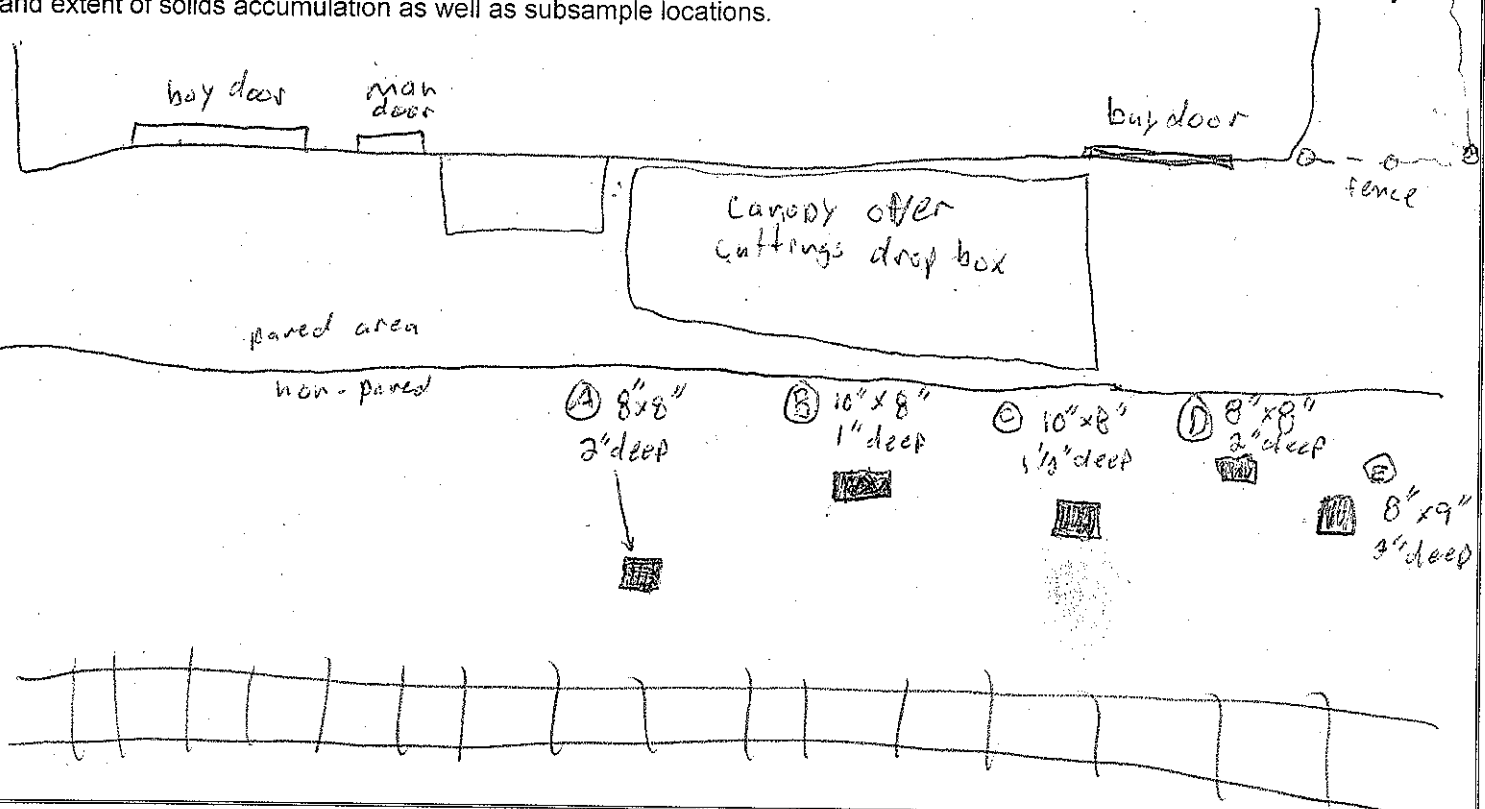 and extent of solids accumulation as well as subsample locations.
bay door
man
door
bay door
fence
Canopy over
cuttings drop box
paved area
non-paved
A 8"x8"
2" deep
B 10"x8"
1" deep
C 10"x8"
1 1/2" deep
D 8"x8"
2" deep
E
8"x9"
3" deep